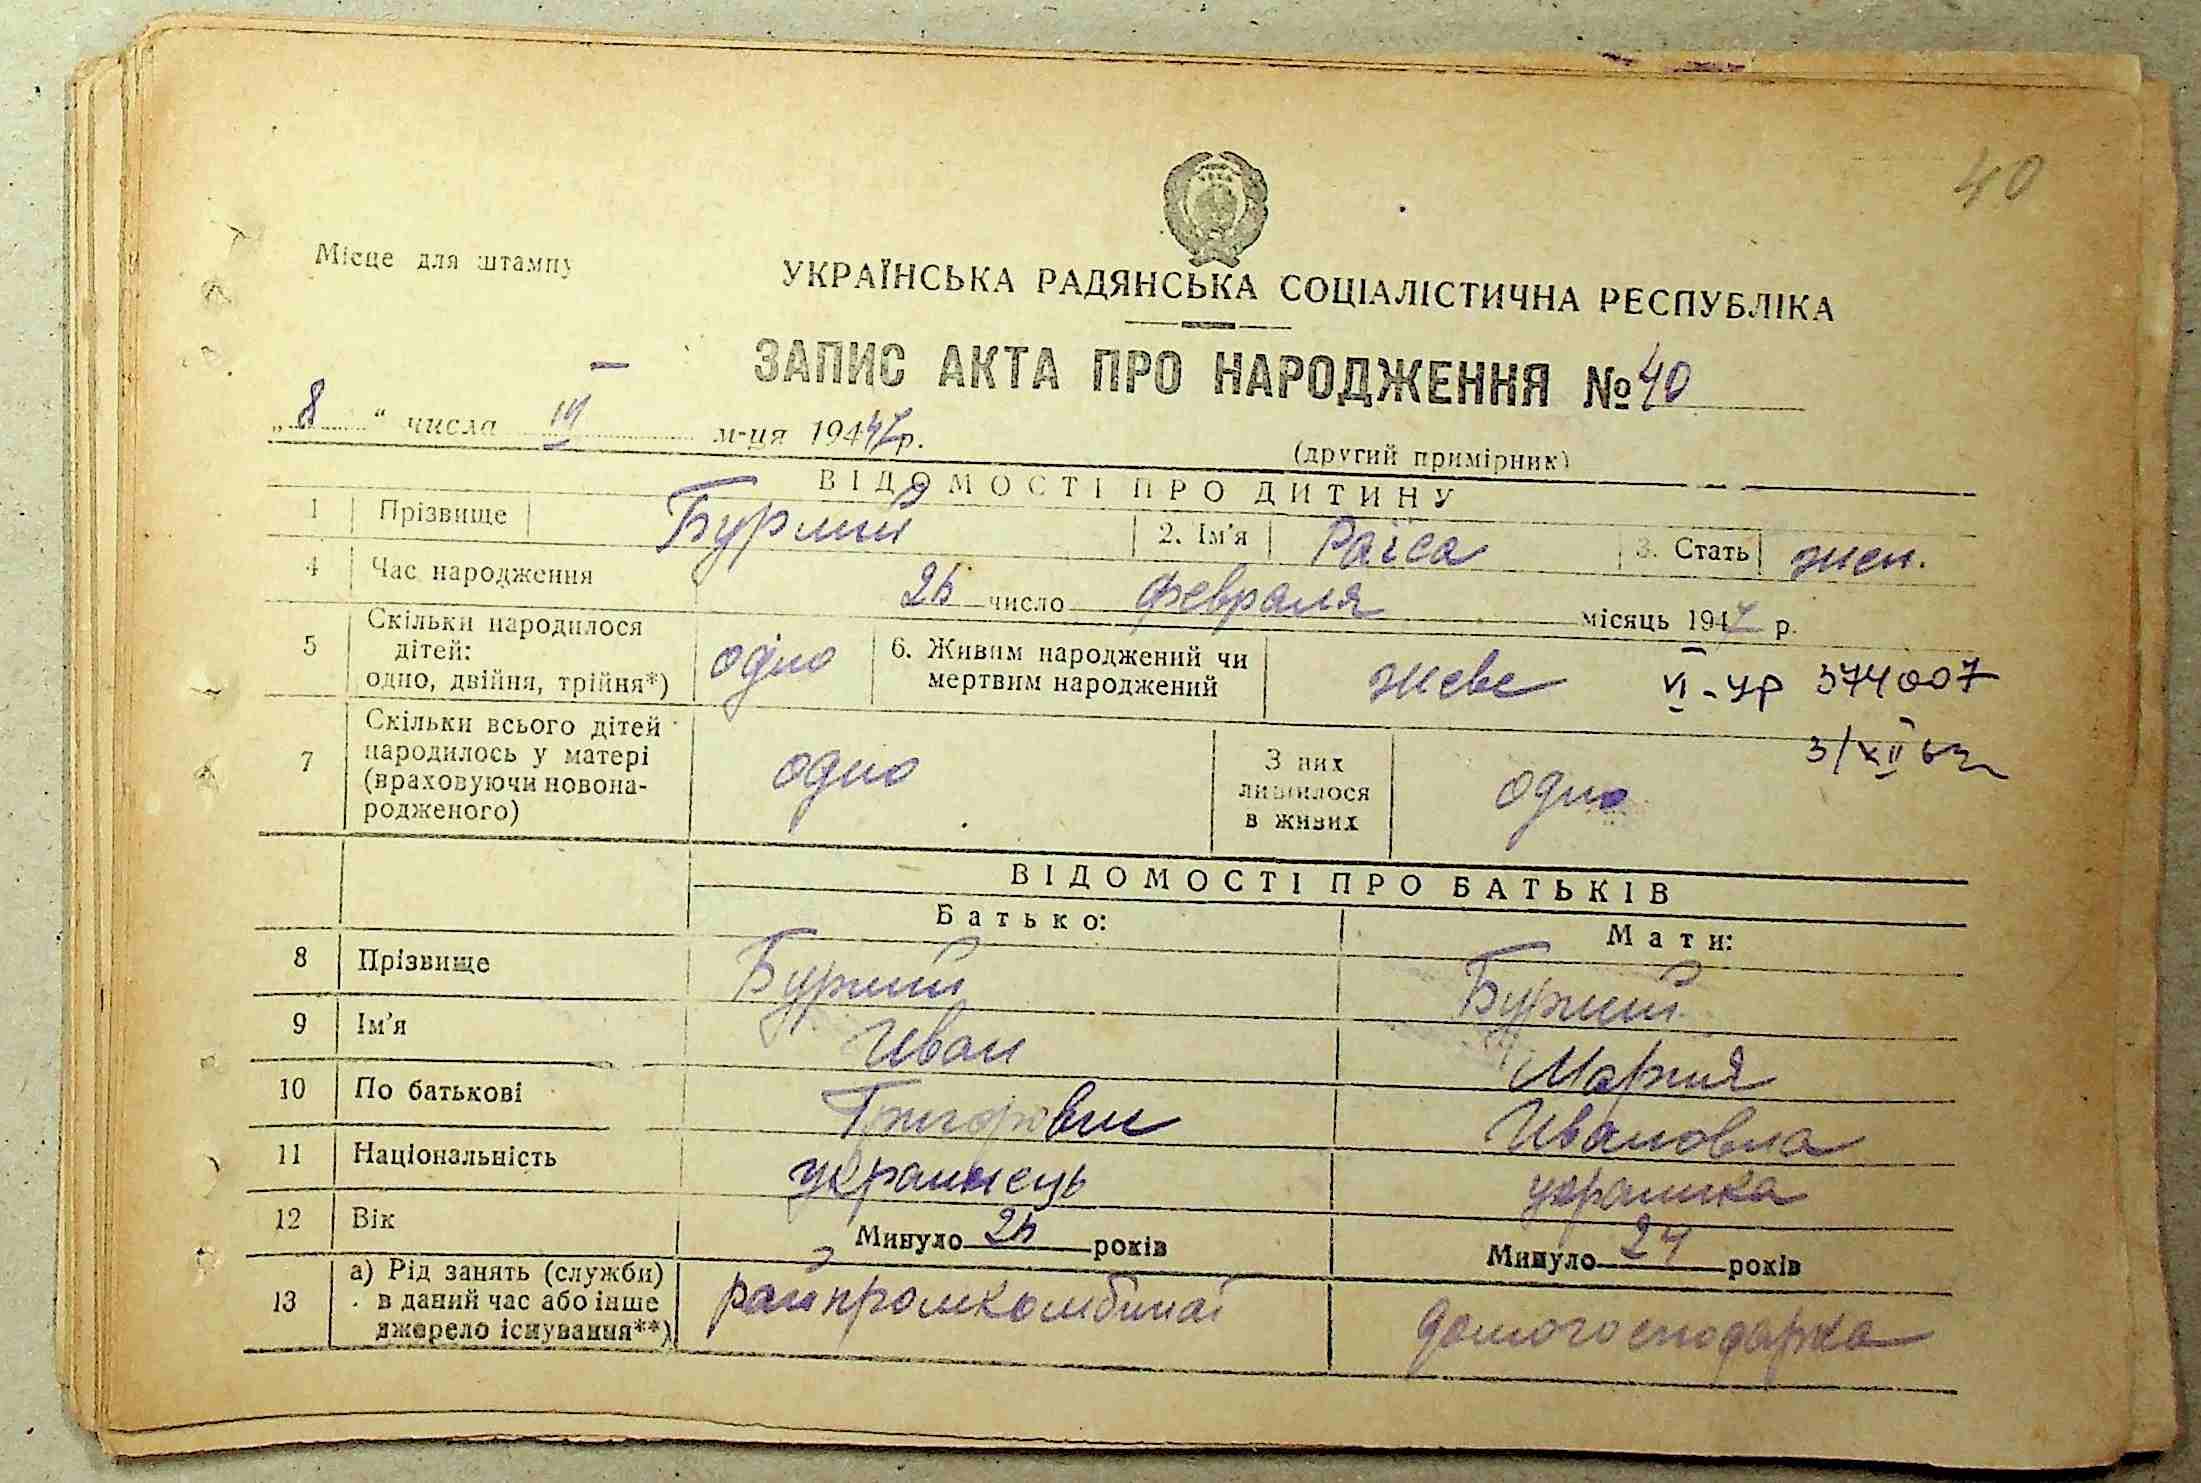 40
Місце для штампу
УКРАЇНСЬКА РАДЯНСЬКА СОЦІАЛІСТИЧНА РЕСПУБЛІКА
ЗАПИС АКТА ПРО НАРОДЖЕННЯ № 40
„8“ числа III м-ця 194 47 р.
(другий примірник)
ВІДОМОСТІ ПРО ДИТИНУ
1 Прізвище Бурлий 2. Ім'я Раїса 3. Стать жен.
4 Час народження 26 число февраля місяць 1947 р.
5 Скільки народилося дітей: одно, двійня, трійня*) одно 6. Живим народжений чи мертвим народжений живе
VI-УР 374007
3/XII 63
7 Скільки всього дітей народилось у матері (враховуючи новонародженого) одно З них лишилося в живих одно
ВІДОМОСТІ ПРО БАТЬКІВ
Батько: Мати:
8 Прізвище Бурлий Бурлий
9 Ім'я Иван Мария
10 По батькові Григорович Ивановна
11 Національність українець українка
12 Вік Минуло 26 років Минуло 24 років
13 а) Рід занять (служби) в даний час або інше джерело існування**) райпромкомбинат домогосподарка